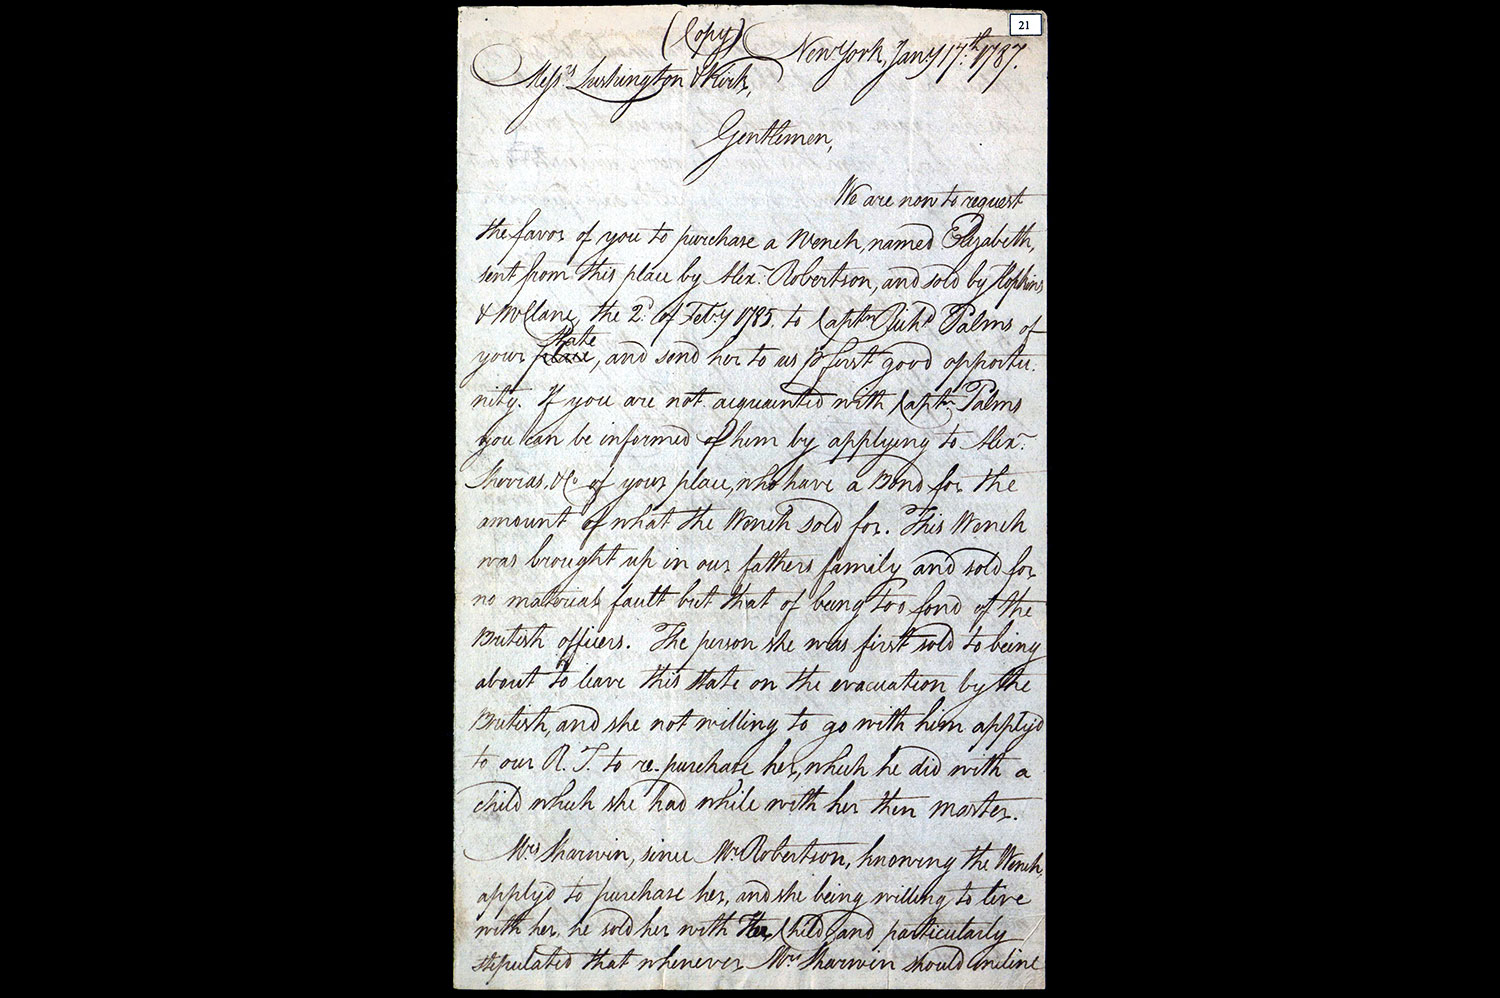 21
(Copy)
New York, Jany 17th 1787.
Messrs Lushington & Kirk,
Gentlemen,
We are now to request
the favor of you to purchase a Wench, named Elizabeth,
sent from this place by Alexr Robertson, and sold by Hopkins
& McLane, the 2d of Feby 1785. to Captn Richd Palms of
state
your place, and send her to us ⅌ first good opportu-
nity. If you are not acquainted with Captn Palms
you can be informed of him by applying to Alexr
& Co of your place, who have a Bond for the
amount of what the Wench sold for. This Wench
was brought up in our fathers family and sold for
no material fault but that of being too fond of the
British officers. The person she was first sold to being
about to leave this state on the evacuation by the
British, and she not willing to go with him apply'd
to our R. T. to re-purchase her, which he did with a
child which she had while with her then master.
Mrs Sharwin, since Mrs Robertson, knowing the Wench,
apply'd to purchase her, and she being willing to live
with her, he sold her with Her Child and particularly
stipulated that whenever Mrs Sharwin should incline